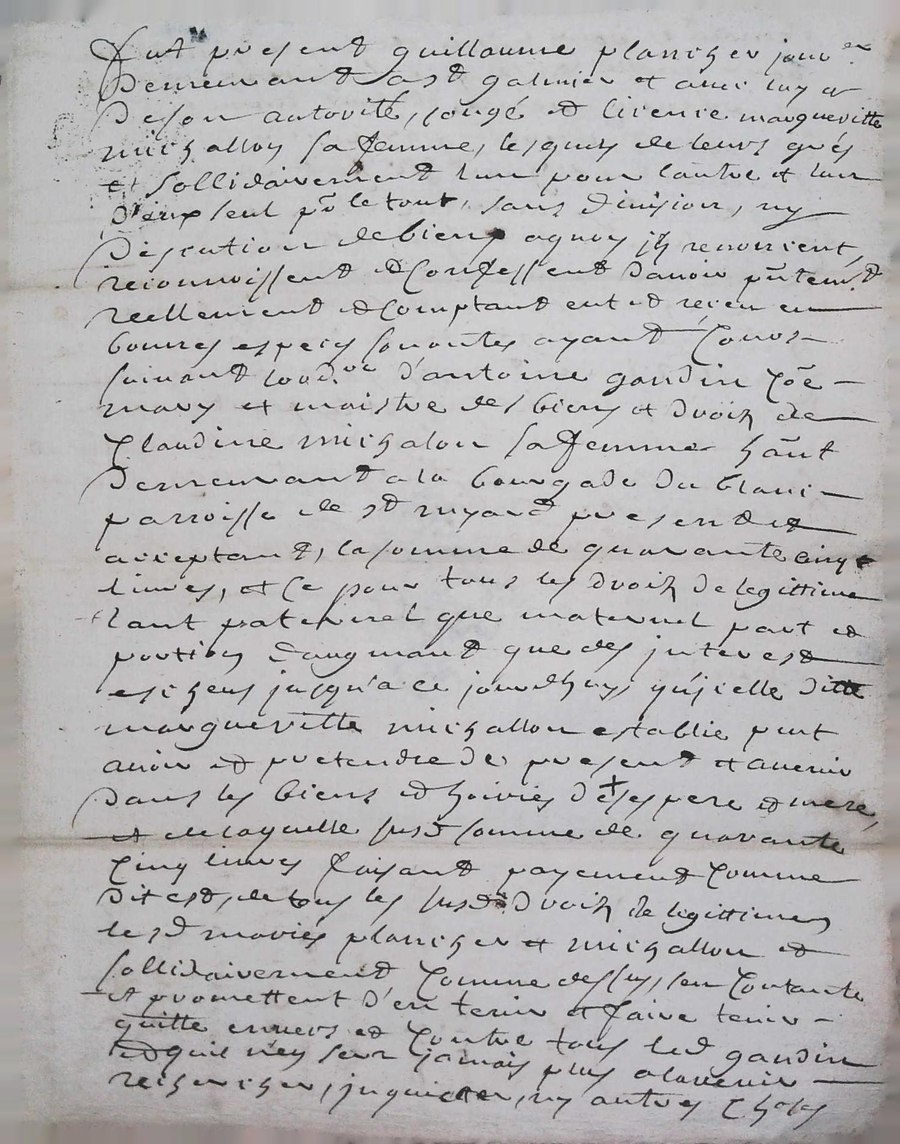 fut present guillaume plancher jour.er
demeurant a st galmier et avec luy et
de son autorité, congé et licence margueritte
michallon sa femme, lesquels de leurs grés
et sollidairement l'un pour l'autre et l'un
d'eux seul pr le tout, sans division, ny
discution de biens a quoy ils renoncent,
reconnoissent et confessent d'avoir pntem.t
reellement et comptant eut et receu en
bonnes especes sonantes ayant cours
suivant d'antoine gaudin coe
mary et maistre des biens et droits de
claudine michalon sa femme
demeurant a la bourgade du blanc
parroisse de st present et
acceptant, la somme de quarante cinq
livres, et ce pour tous les droits de legittime
tant paternel que maternel part et
portion d'augmant que des interest
escheus jusqu'a ce jourdhuy qu'icelle ditte
margueritte michallon establie peut
avoir et pretendre de present et avenir
dans les biens et hoiries de ses pere et mere,
et de laquelle susd somme de quarante
cinq livres faisant payement comme
dit est, de tous les susd droits de legittimes
les d mariés plancher et michallon et
sollidairement comme dessus, s'en contante
et promettent d'en tenir et faire tenir
quitte envers et contre tous led gaudin
et qu'il n'en sera jamais plus a l'avenir
rechercher, inquietter, ny autres choses